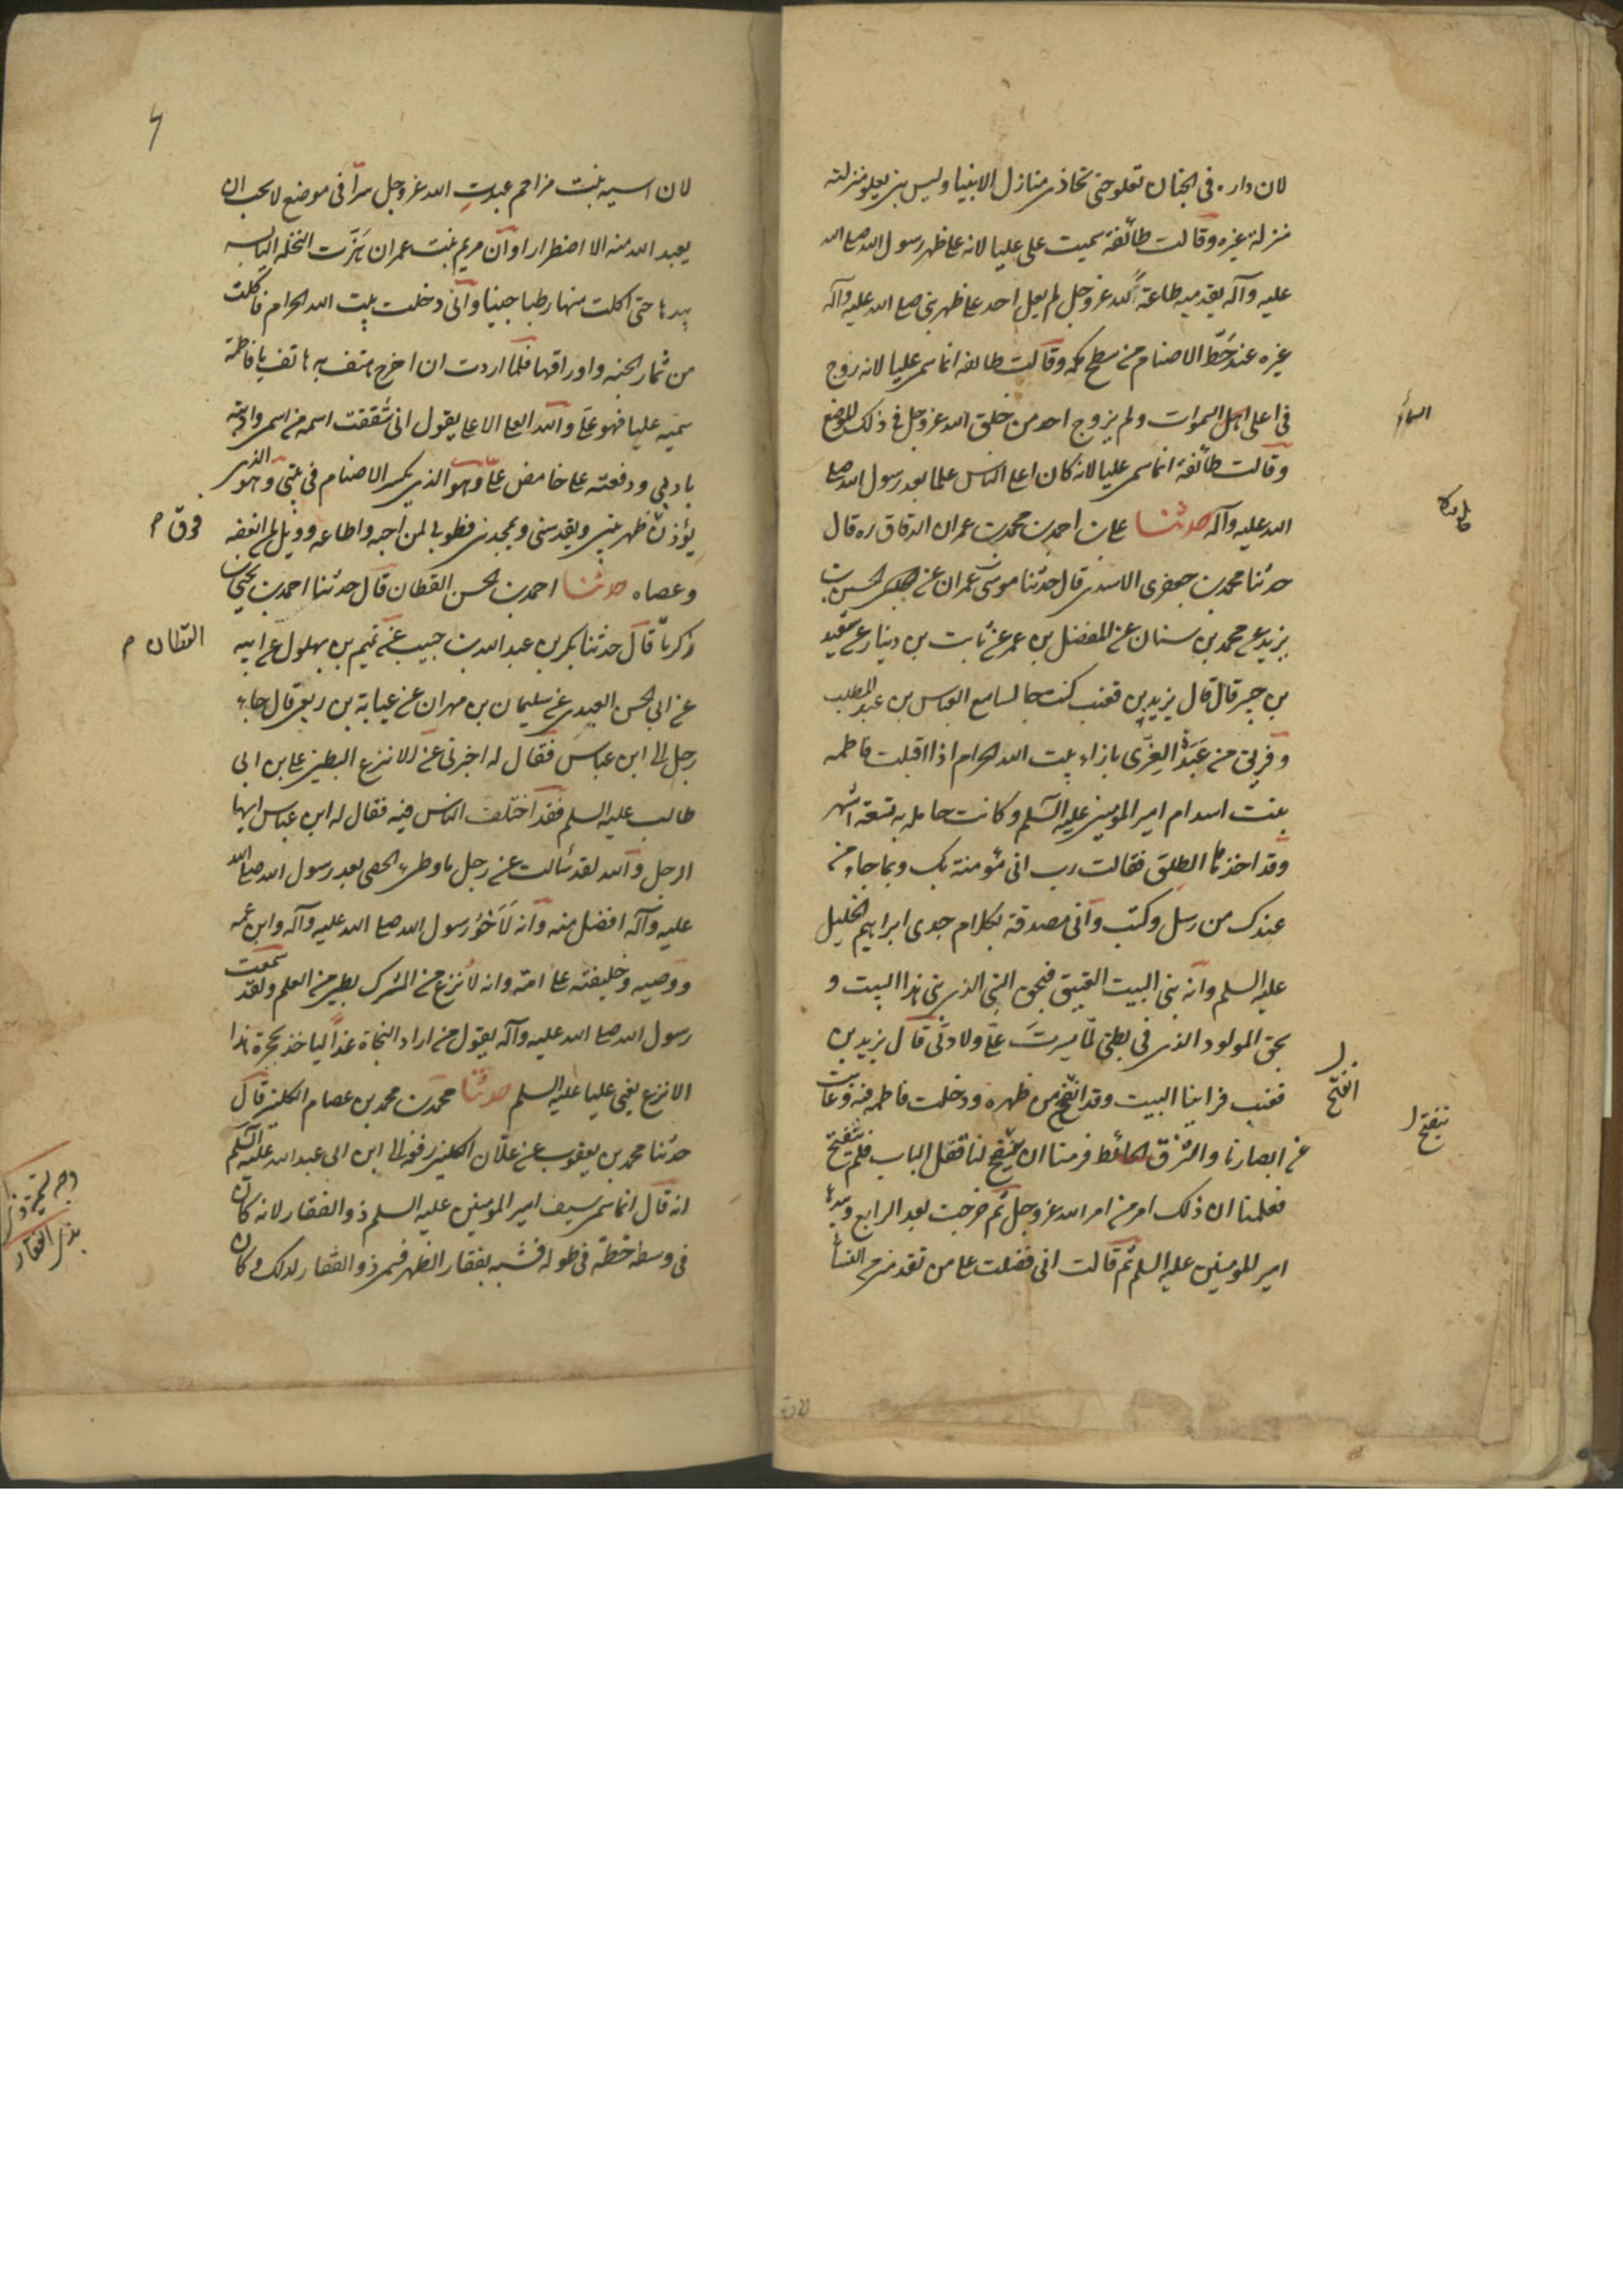 لان داره فى الجنان تعلو حتى تحاذى منازل الانبيا وليس نبى يعلو منزلته
منزلة غيره وقالت طائفة سميت على عليا لانه علا ظهر رسول الله صلى الله
عليه وآله بقدميه طاعة لله عز وجل ولم يعل احد على ظهر نبى صلى الله عليه وآله
غيره عند حط الاصنام من سطح مكه وقالت طائفه انما سمى عليا لانه زوج
فى اعلى اهل السموات ولم يزوج احد من خلق الله عز وجل فى ذلك الموضع
وقالت طائفة انما سمى عليا لانه كان اعلى الناس علما بعد رسول الله صلى
الله عليه وآله حدثنا على بن احمد بن محمد بن عمران الدقاق ره قال
حدثنا محمد بن جعفر الاسدى قال حدثنا موسى بن عمران عن الحسين بن
يزيد عن محمد بن سنان عن المفضل بن عمر عن ثابت بن دينار عن سعيد
بن جبير قال قال يزيد بن قعنب كنت جالسا مع العباس بن عبد المطلب
وفريق من عبد العزى بازاء بيت الله الحرام اذ اقبلت فاطمه
بنت اسد ام امير المومنين عليه السلم وكانت حامله به لتسعة اشهر
وقد اخذها الطلق فقالت رب انى مؤمنة بك وبما جاء من
عندك من رسل وكتب وانى مصدقة بكلام جدى ابراهيم الخليل
عليه السلم وانه بنى البيت العتيق فبحق النبى الذى بنى هذا البيت و
بحق المولود الذى فى بطنى لما يسرت على ولادتى قال يزيد بن
قعنب فراينا البيت وقد انفتح من ظهره ودخلت فاطمه فيه وغابت
عن ابصارنا والتزق الحائط فرمنا ان ينفتح لنا قفل الباب فلم ينفتح
فعلمنا ان ذلك امر من امر الله عز وجل ثم خرجت بعد الرابع وبيدها
امير المومنين عليه السلم ثم قالت انى فضلت على من تقدمنى من النساء
انفتح
ينفتح ل
لان اسيه بنت مزاحم عبدت الله عز وجل سرا فى موضع لا يحب ان
يعبد الله منه الا اضطرارا وان مريم بنت عمران هزت النخله اليابسه
بيدها حتى اكلت منها رطبا جنيا وانى دخلت بيت الله الحرام فاكلت
من ثمار الجنه واوراقها فلما اردت ان اخرج هتف به هاتف يا فاطمة
سميه عليا فهو على والله العلى الاعلى يقول انى شققت اسمه من اسمى وادبته
بادبى ووقفته على غامض علمى وهو الذى يكسر الاصنام فى بيتى وهو الذى
يؤذن ظهر بيتى ويقدسنى ويمجدنى فطوبى لمن احبه واطاعه وويل لمن ابغضه
وعصاه حدثنا احمد بن الحسن القطان قال حدثنا احمد بن يحيى بن
زكريا قال حدثنا بكر بن عبد الله بن حبيب عن تميم بن بهلول عن ابيه
عن ابى الحسن العبدى عن سليمان بن مهران عن عباية بن ربعى قال جاء
رجل الى ابن عباس فقال له اخبرنى عن الانزع البطين على بن ابى
طالب عليه السلم فقد اختلف الناس فيه فقال له ابن عباس ايها
الرجل والله لقد سالت عن رجل ما وطىء الحصى بعد رسول الله صلى الله
عليه وآله افضل منه وانه لاخو رسول الله صلى الله عليه وآله وابن عمه
ووصيه وخليفته على امته وانه لانزع من الشرك بطين من العلم ولقد سمعت
رسول الله صلى الله عليه وآله يقول من اراد النجاة غدا لياخذ بحجزة هذا
الانزع يعنى عليا عليه السلم حدثنا محمد بن محمد بن عصام الكلينى قال
حدثنا محمد بن يعقوب عن علان الكلينى رفعه الى ابن ابى عبد الله عليه السلم
انه قال انما سمى سيف امير المومنين عليه السلم ذو الفقار لانه كان
فى وسطه خطة فى طوله فشبه بفقار الظهر فسمى ذو الفقار لذلك وكان
فوق م
القطان م
وجه تسميه
بذى الفقار